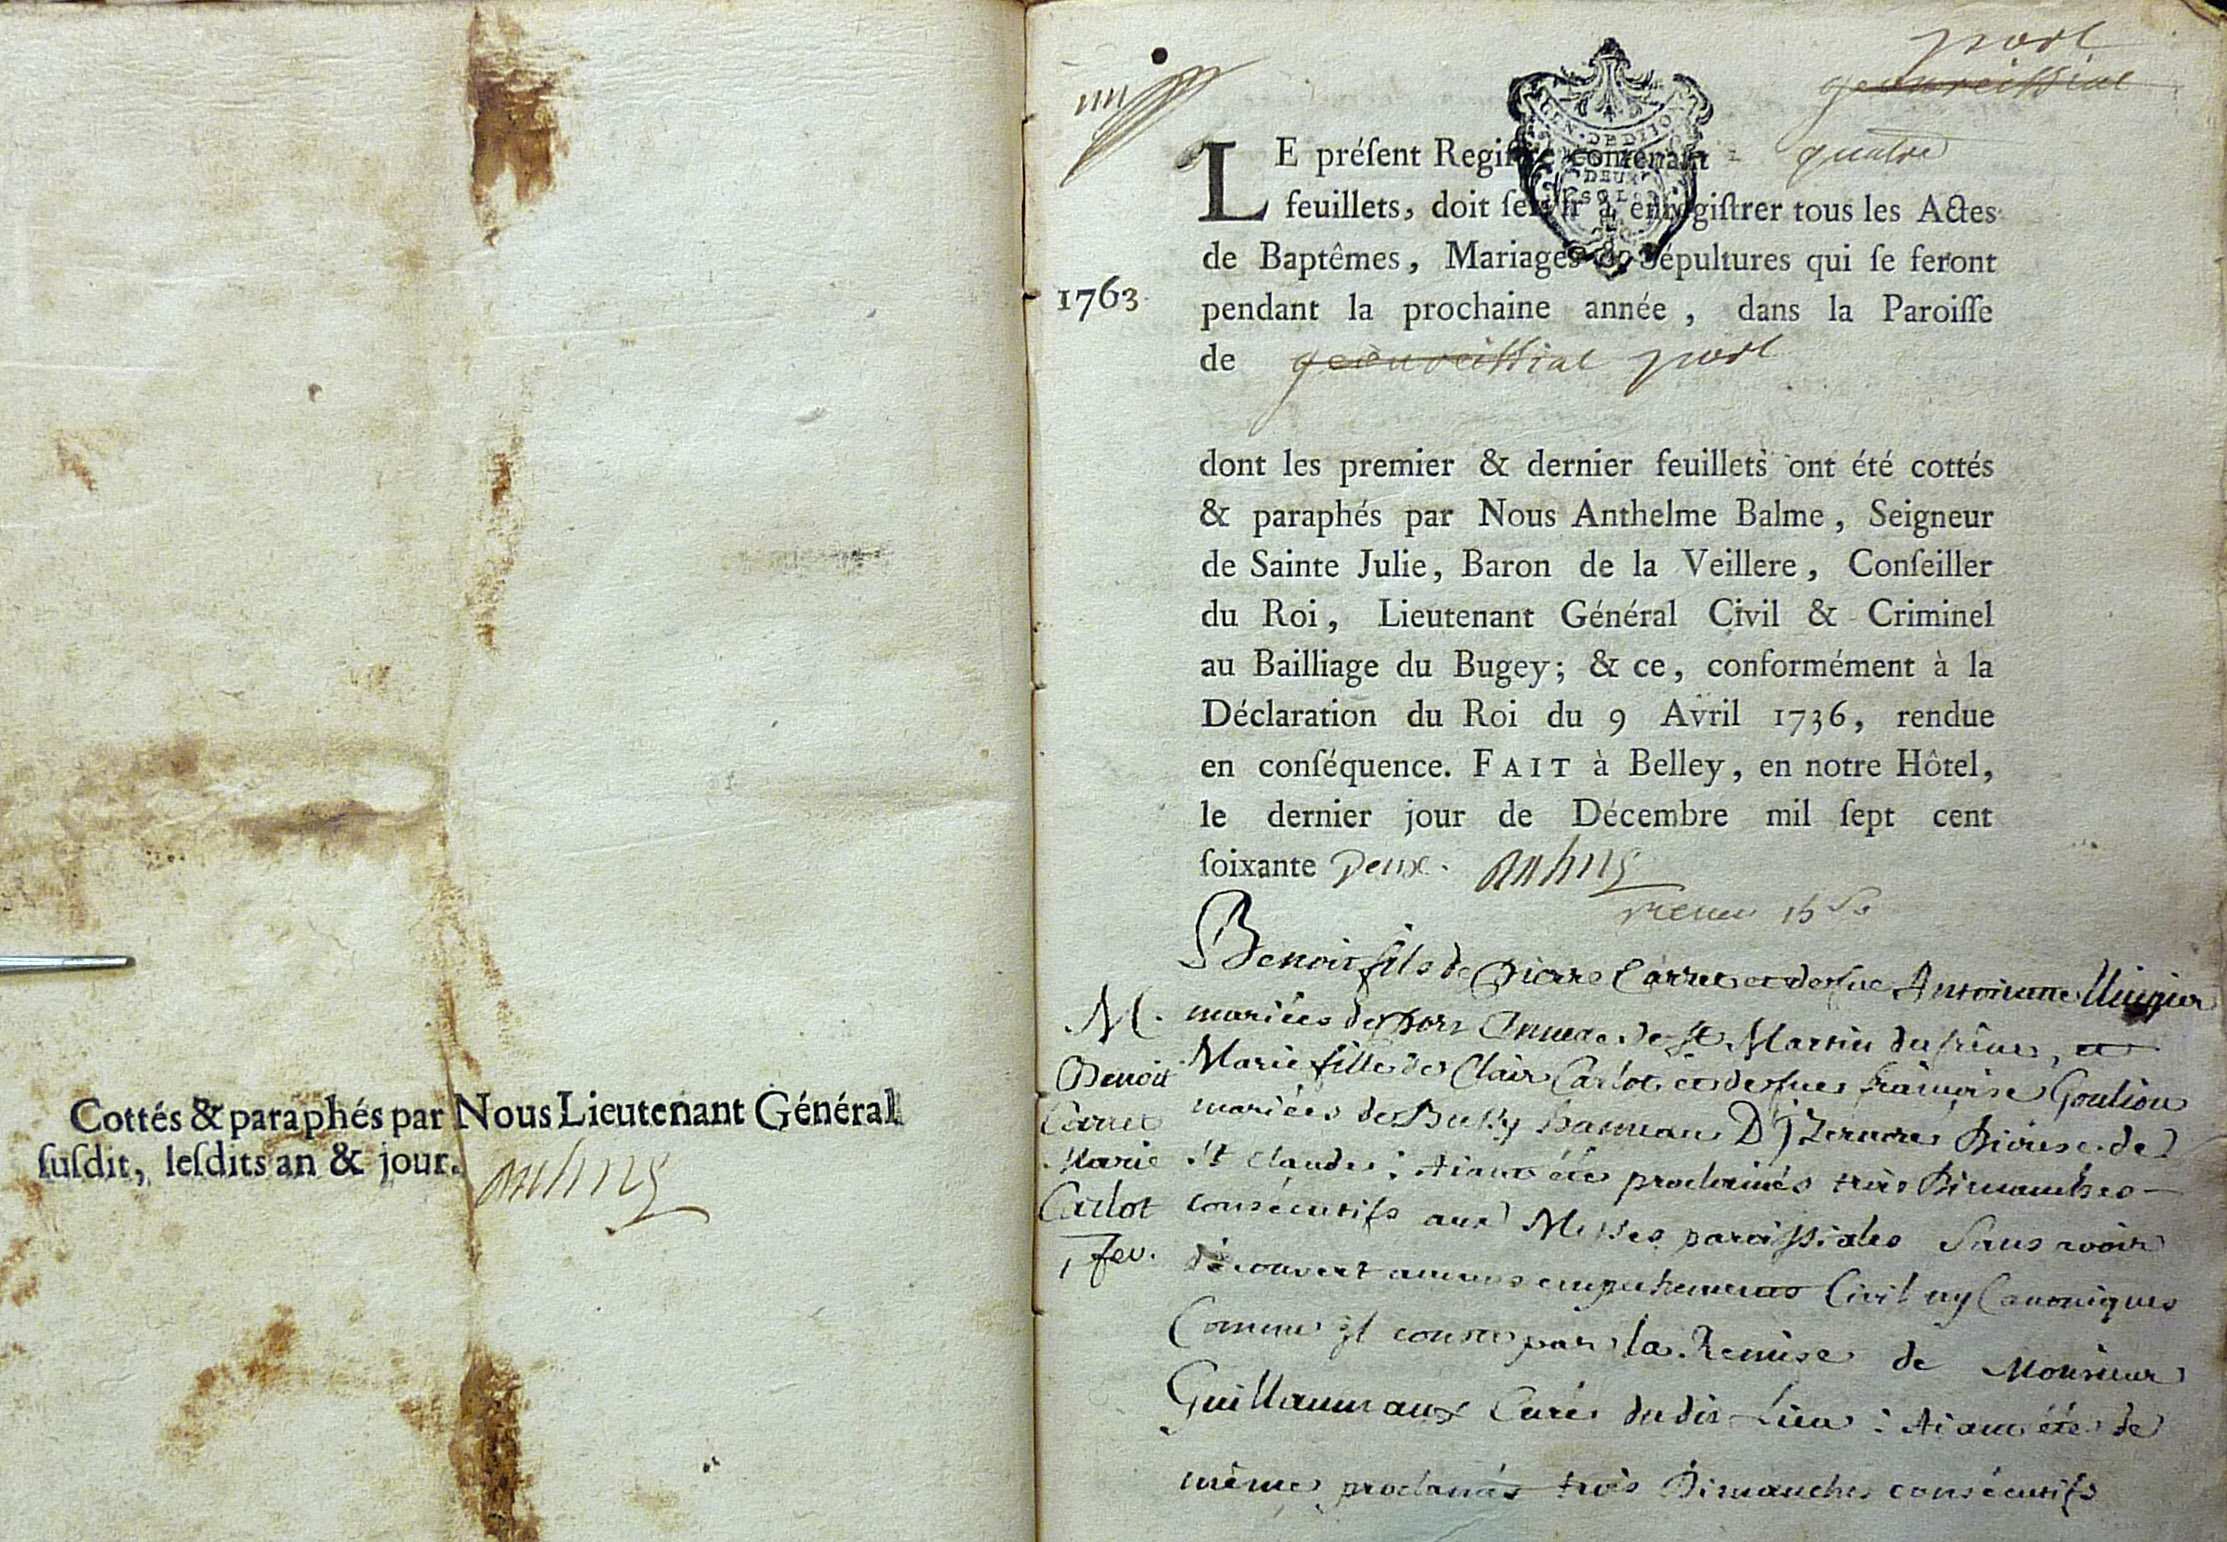 Cottés & paraphés par Nous Lieutenant Général
ſuſdit, leſdits an & jour.
port
quatre
LE préſent Regiſtre contenant
feuillets, doit ſervir à enregiſtrer tous les Actes
de Baptêmes, Mariages & Sépultures qui ſe feront
1763
pendant la prochaine année, dans la Paroiſſe
de port
dont les premier & dernier feuillets ont été cottés
& paraphés par Nous Anthelme Balme, Seigneur
de Sainte Julie, Baron de la Veillere, Conſeiller
du Roi, Lieutenant Général Civil & Criminel
au Bailliage du Bugey; & ce, conformément à la
Déclaration du Roi du 9 Avril 1736, rendue
en conſéquence. FAIT à Belley, en notre Hôtel,
le dernier jour de Décembre mil ſept cent
ſoixante Deux.
Benoit fils de Pierre Carret et de fue Antoinette
mariées de Port Annexe de St Martin du frêne, et
Marie fille de Clair Carlot et de fue francoise Goulion
mariées de Bussy hameau D'jzernore Diocese de
St Claude : Aiant été proclamés trois Dimanches
consécutifs aux Messes paroissiales Sans avoir
découvert aucuns empechements Civil ny Canoniques
Comme jl conste par la Remise de Monsieur
Guillaumaux Curé dudit Lieu : Aiant été de
même proclamés trois Dimanches consécutifs
M.
Benoit
Carret
Marie
Carlot
1 fev.
DEUX
SOLS